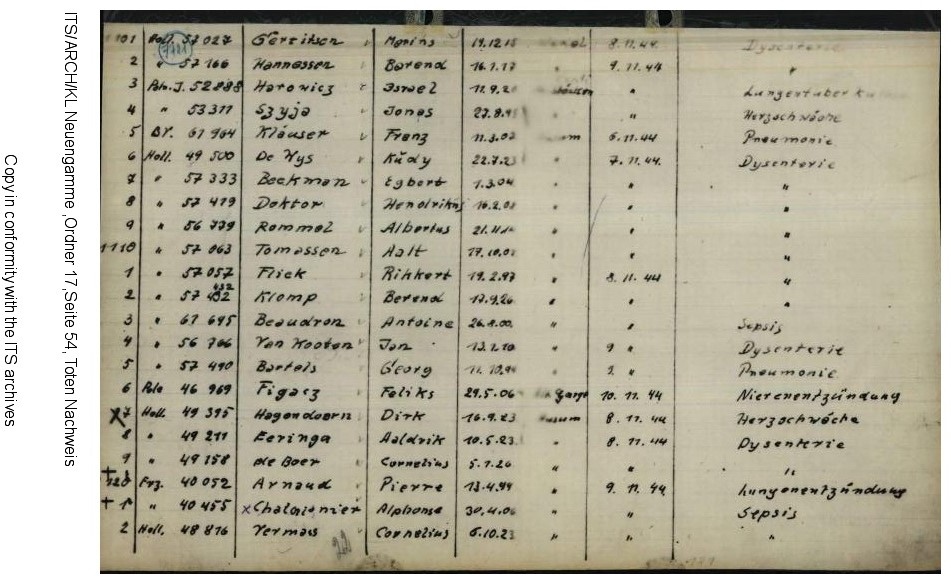 ITS/ARCH/KL Neuengamme ,Ordner 17,Seite 54, Toten Nachweis
Copy in conformity with the ITS archives
1101 Holl. 57 027 Gerritsen Marins 19.12.1 8.11.44 Dysenterie
7701
2 " 57 166 Hannessen Barend 16.1.17 9.11.44 "
3 Pole.J. 52888 Harowicz Israel 11.9.2 " Lungentuber
4 " 53311 Szyja Jonas " Herzschwäche
5 DR. 61 964 Kläuser Franz 11.3.02 6.11.44 Pneumonie
6 Holl. 49 500 De Wys Rüdy 22.7.2 7.11.44. Dysenterie
7 " 57 333 Beekman Egbert 1.3.04 " "
8 " 57 479 Doktor Hendrikus 16.2.0 " "
9 " 56 739 Rommel Albertus 21. " "
1110 " 57 063 Tomassen Aalt 17.10.0 " "
1 " 57 057 Flick Rihkert 19.2.97 " 8.11.44 "
432
2 " 57 Klomp Berend 17.9.26 " " "
3 " 61 695 Beaudron Antoine 26.8.00. " " Sepsis
4 " 56 766 Van Kooten Jan 13.2.10 " 9 " Dysenterie
5 " 57 490 Bartels Georg 11.10.9 " 9. " Pneumonie
6 Pole 46 969 Figacz Feliks 29.5.06 10.11.44 Nierenentzündung
X7 Holl. 49 395 Hagendoorn Dirk 16.9.23 8.11.44 Herzschwäche
8 " 49 211 Eeringa Aaldrik 10.5.23 " 8.11.44 Dysenterie
9 " 49 158 de Boer Cornelius 5.1.26 " " "
+ 120 Frz. 40 052 Arnaud Pierre 13.4.99 " 9.11.44 Lungenentzündung
+ 1 " 40 455 x Alphonse 30.4.0 " " Sepsis
2 Holl. 48 816 Vermass Cornelius 6.10.23 " " "